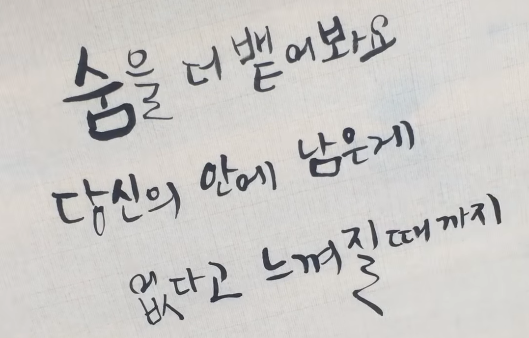 숨을 더 뱉어봐요
당신의 안에 남은게
없다고 느껴질때까지